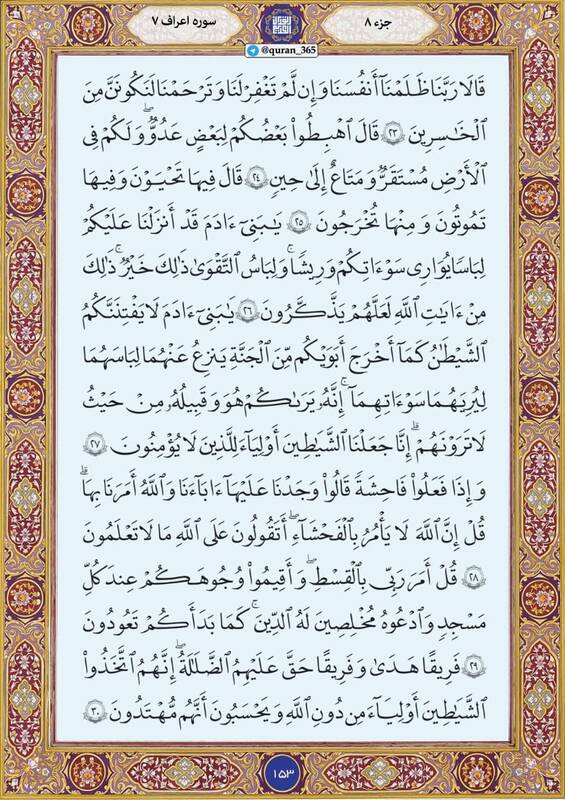 جزء ۸
سوره اعراف ۷
@quran_365
قَالَا رَبَّنَا ظَلَمْنَآ أَنفُسَنَا وَإِن لَّمْ تَغْفِرْ لَنَا وَتَرْحَمْنَا لَنَكُونَنَّ مِنَ
ٱلْخَـٰسِرِينَ ۝٢٣ قَالَ ٱهْبِطُوا۟ بَعْضُكُمْ لِبَعْضٍ عَدُوٌّۖ وَلَكُمْ فِى
ٱلْأَرْضِ مُسْتَقَرٌّ وَمَتَاعٌ إِلَىٰ حِينٍ ۝٢٤ قَالَ فِيهَا تَحْيَوْنَ وَفِيهَا
تَمُوتُونَ وَمِنْهَا تُخْرَجُونَ ۝٢٥ يَـٰبَنِىٓ ءَادَمَ قَدْ أَنزَلْنَا عَلَيْكُمْ
لِبَاسًا يُوَٰرِى سَوْءَٰتِكُمْ وَرِيشًاۖ وَلِبَاسُ ٱلتَّقْوَىٰ ذَٰلِكَ خَيْرٌۚ ذَٰلِكَ
مِنْ ءَايَـٰتِ ٱللَّهِ لَعَلَّهُمْ يَذَّكَّرُونَ ۝٢٦ يَـٰبَنِىٓ ءَادَمَ لَا يَفْتِنَنَّكُمُ
ٱلشَّيْطَـٰنُ كَمَآ أَخْرَجَ أَبَوَيْكُم مِّنَ ٱلْجَنَّةِ يَنزِعُ عَنْهُمَا لِبَاسَهُمَا
لِيُرِيَهُمَا سَوْءَٰتِهِمَآۗ إِنَّهُۥ يَرَىٰكُمْ هُوَ وَقَبِيلُهُۥ مِنْ حَيْثُ
لَا تَرَوْنَهُمْۗ إِنَّا جَعَلْنَا ٱلشَّيَـٰطِينَ أَوْلِيَآءَ لِلَّذِينَ لَا يُؤْمِنُونَ ۝٢٧
وَإِذَا فَعَلُوا۟ فَـٰحِشَةً قَالُوا۟ وَجَدْنَا عَلَيْهَآ ءَابَآءَنَا وَٱللَّهُ أَمَرَنَا بِهَاۗ
قُلْ إِنَّ ٱللَّهَ لَا يَأْمُرُ بِٱلْفَحْشَآءِۖ أَتَقُولُونَ عَلَى ٱللَّهِ مَا لَا تَعْلَمُونَ
۝٢٨ قُلْ أَمَرَ رَبِّى بِٱلْقِسْطِۖ وَأَقِيمُوا۟ وُجُوهَكُمْ عِندَ كُلِّ
مَسْجِدٍ وَٱدْعُوهُ مُخْلِصِينَ لَهُ ٱلدِّينَۚ كَمَا بَدَأَكُمْ تَعُودُونَ
۝٢٩ فَرِيقًا هَدَىٰ وَفَرِيقًا حَقَّ عَلَيْهِمُ ٱلضَّلَـٰلَةُۗ إِنَّهُمُ ٱتَّخَذُوا۟
ٱلشَّيَـٰطِينَ أَوْلِيَآءَ مِن دُونِ ٱللَّهِ وَيَحْسَبُونَ أَنَّهُم مُّهْتَدُونَ ۝٣٠
۱۵۳